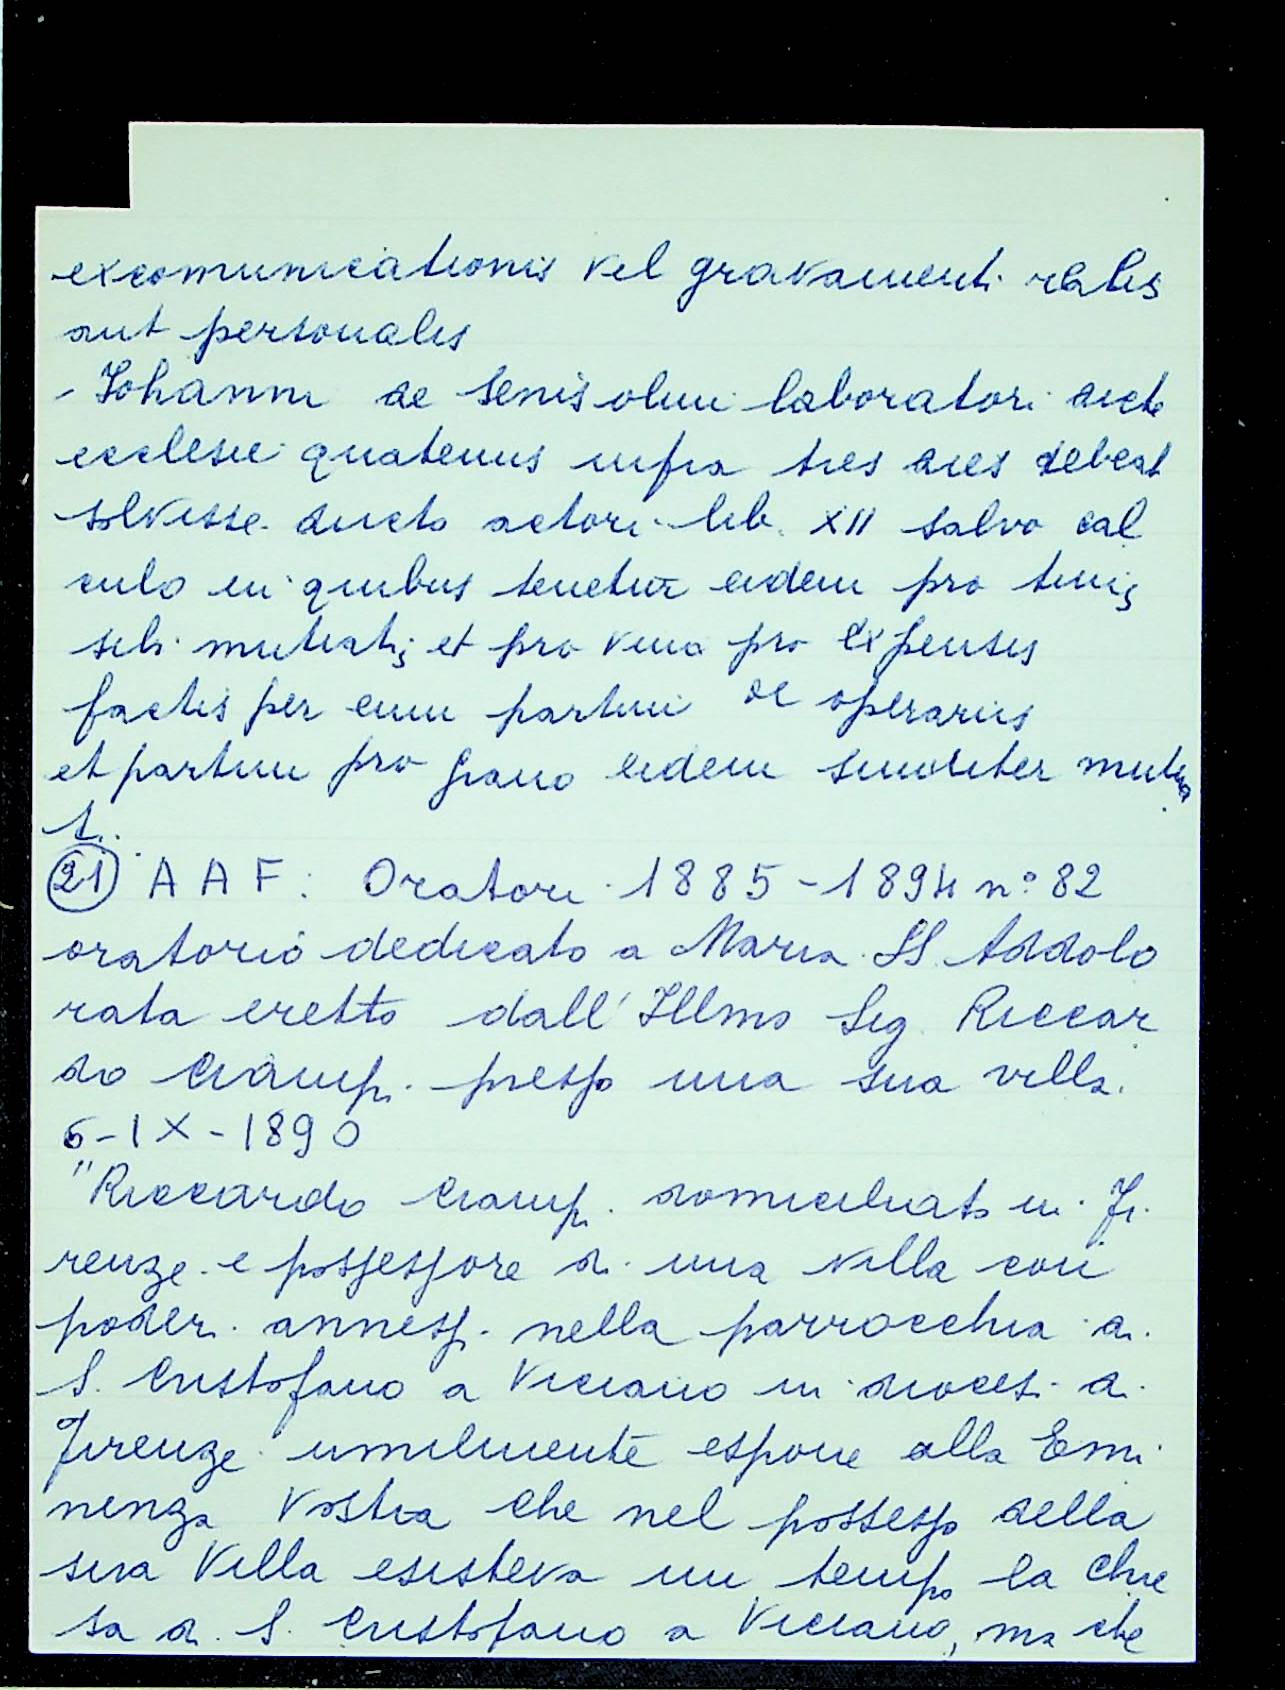 excomunicationis vel gravamenti realis
aut personalis
- Iohanni de Senis olim laboratori dicte
ecclesie quatenus infra tres dies debeat
solvisse dicto actori lib. XII salvo cal
culo in quibus tenetur eidem pro
sibi mutuatis et pro vino pro expensis
factis per eum partim de operariis
et partim pro grano eidem similiter mutua
ti.
(21) A A F: Oratori 1885-1894 n° 82
oratorio dedicato a Maria SS. Addolo
rata eretto dall'Illmo Sig. Riccar
do Ciampi presso una sua villa.
6-IX-1890
"Riccardo Ciampi domiciliato in Fi
renze e possessore di una villa con
poderi annessi nella parrocchia di
S. Cristofano a Viciano in diocesi di
Firenze umilmente espone alla Emi
nenza Vostra che nel possesso della
sua Villa esisteva un tempo la Chie
sa di S. Cristofano a Viciano, ma che